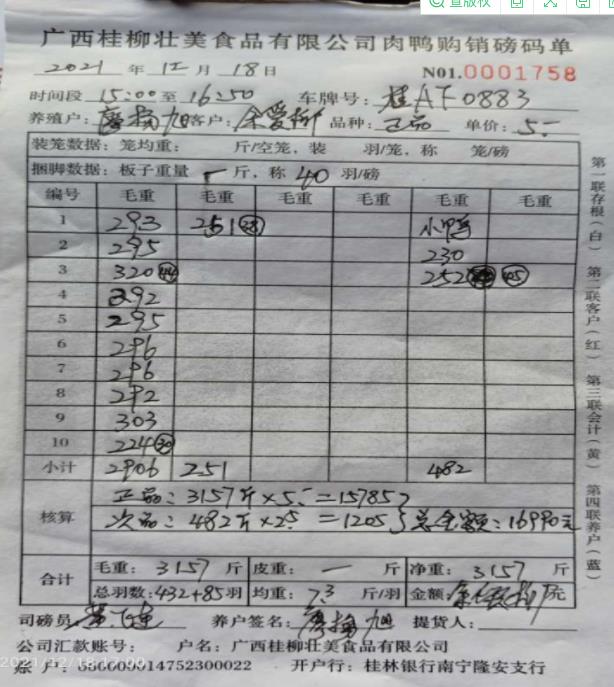 查版权
广西桂柳壮美食品有限公司肉鸭购销磅码单
2021 年 12 月 18 日 N01.0001758
时间段 15:00 至 16:50 车牌号: 桂AF0883
养殖户: 廖扬旭 客户: 余爱柳 品种: 正品 单价: 5.-
装笼数据: 笼均重: 斤/空笼, 装 羽/笼, 称 笼/磅
捆脚数据: 板子重量 斤, 称 40 羽/磅
编号 毛重 毛重 毛重 毛重 毛重 毛重
1 293 251 38 小鸭
2 295 230
3 320 44 252 45
4 292
5 295
6 296
7 296
8 292
9 303
10 224 30
小计 2906 251 482
核算 正品: 3157斤×5.-=15785
次品: 482斤×2.5=1205 } 总金额: 16990元
合计 毛重: 3157 斤 皮重: — 斤 净重: 3157 斤
总羽数: 432+85 羽 均重: 7.3 斤/羽 金额: 元
司磅员: 养户签名: 廖扬旭 提货人:
公司汇款账号: 户名: 广西桂柳壮美食品有限公司
账 户: 660000014752300022 开户行: 桂林银行南宁隆安支行
2021/12/18 17:00
第一联存根(白) 第二联客户(红) 第三联会计(黄) 第四联养户(蓝)